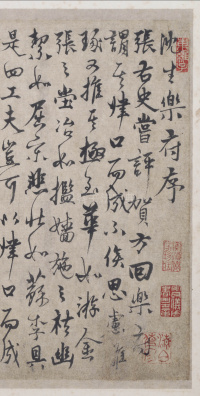 沈生樂府序
張右史嘗評賀方回樂府
謂其肆口而成不俟思慮雕
琢又推其極至華如游金
張之堂冶如攬嬙施之袪幽
潔如屈宋悲壯如蘇李具
是四工夫豈可以肆口而成